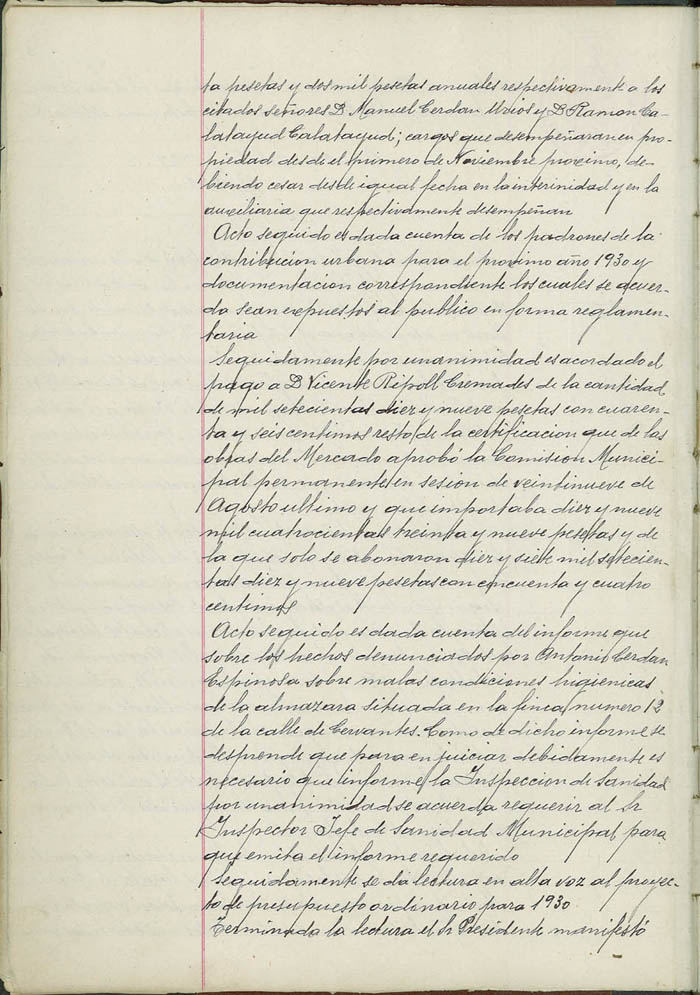 ta pesetas y dos mil pesetas anuales respectivamente a los
citados señores D Manuel Cerdan Urios y D Ramon Ca-
latayud Calatayud; cargos que desempeñaran en pro-
piedad desde el primero de Noviembre proximo, de-
biendo cesar desde igual fecha en la interinidad y en la
auxiliaria que respectivamente desempeñan
Acto seguido es dada cuenta de los padrones de la
contribucion urbana para el proximo año 1930 y
documentacion correspondiente los cuales se acuer-
da sean expuestos al publico en forma reglamen-
taria
Seguidamente por unanimidad es acordado el
pago a D Vicente Ripoll Cremades de la cantidad
de mil setecientas diez y nueve pesetas con cuaren-
ta y seis centimos resto de la certificacion que de las
obras del Mercado aprobó la Comision Munici-
pal permanente en sesion de veintinueve de
Agosto ultimo y que importaba diez y nueve
mil cuatrocientas treinta y nueve pesetas y de
la que solo se abonaron diez y siete mil setecien-
tas diez y nueve pesetas con cincuenta y cuatro
centimos
Acto seguido es dada cuenta del informe que
sobre los hechos denunciados por Antonio Cerdan
Espinosa sobre malas condiciones higienicas
de la almazara situada en la finca numero 12
de la calle de Cervantes. Como de dicho informe se
desprende que para enjuiciar debidamente es
necesario que informe la Inspeccion de Sanidad
por unanimidad se acuerda requerir al Sr
Inspector Jefe de Sanidad Municipal para
que emita el informe requerido
Seguidamente se da lectura en alta voz al proyec-
to de presupuesto ordinario para 1930
Terminada la lectura el Sr Presidente manifestó